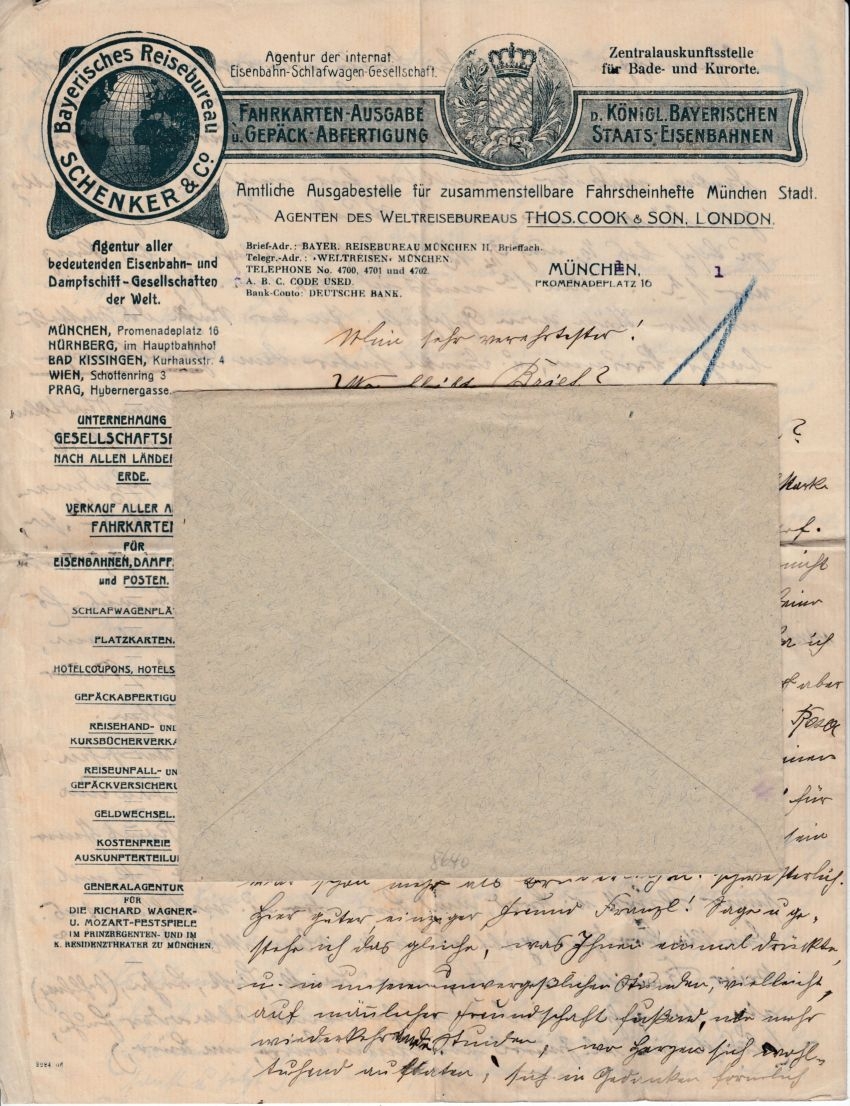 Bayerisches Reisebureau
SCHENKER & Co
Agentur der internat
Eisenbahn-Schlafwagen-Gesellschaft.
Zentralauskunftsstelle
für Bade- und Kurorte.
FAHRKARTEN-AUSGABE
u. GEPÄCK-ABFERTIGUNG
D. KÖNIGL. BAYERISCHEN
STAATS-EISENBAHNEN
Amtliche Ausgabestelle für zusammenstellbare Fahrscheinhefte München Stadt.
AGENTEN DES WELTREISEBUREAUS THOS. COOK & SON, LONDON.
Agentur aller
bedeutenden Eisenbahn- und
Dampfschiff-Gesellschaften
der Welt.
Brief-Adr.: BAYER. REISEBUREAU MÜNCHEN II, Brieffach.
Telegr.-Adr.: »WELTREISEN« MÜNCHEN.
TELEPHONE No. 4700, 4701 und 4702.
A. B. C. CODE USED.
Bank-Conto: DEUTSCHE BANK.
MÜNCHEN, 1
PROMENADEPLATZ 16
MÜNCHEN, Promenadeplatz 16
NÜRNBERG, im Hauptbahnhof
BAD KISSINGEN, Kurhausstr. 4
WIEN, Schottenring 3
PRAG, Hybernergasse
UNTERNEHMUNG
GESELLSCHAFTS
NACH ALLEN LÄNDE
ERDE.
VERKAUF ALLER A
FAHRKARTE
FÜR
EISENBAHNEN, DAMPF
und POSTEN.
SCHLAFWAGENPLÄ
PLATZKARTEN.
HOTELCOUPONS, HOTELS
GEPÄCKABFERTIGU
REISEHAND- UND
KURSBÜCHERVERKA
REISEUNFALL- UN
GEPÄCKVERSICHERU
GELDWECHSEL.
KOSTENFREIE
AUSKUNFTERTEILU
GENERALAGENTUR
FÜR
DIE RICHARD WAGNER-
U. MOZART-FESTSPIELE
IM PRINZREGENTEN- UND IM
K. RESIDENZTHEATER ZU MÜNCHEN.
Mein sehr verehrtester!
Wo bleibt Brief?
?
Marke
nicht
ich
aber
für
sein
war schon mehr als schwesterlich.
Hier guter, einziger Freund Franzl! Sage u. ge-
stehe ich das gleiche, was Ihnen einmal drückte,
u. in unseren unvergeßlichen Stunden, vielleicht,
auf Freundschaft fußend, nie mehr
wiederkehrende Stunden, wo Herzen sich wohl-
tuhend auftaten, sich in Gedanken förmlich
8640